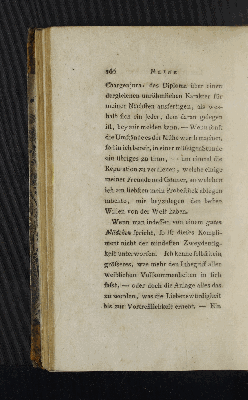 266 Reise
Chargenjura, des Diploms über einen
dergleichen unrühmlichen Karakter für
meiner Nächsten ausfertigen, als wes-
halb sich ein jeder, dem daran gelegen
ist, bey mir melden kann. — Wenn auch
die Umstände es der Mühe werth machen,
so bin ich bereit, in einer müssigen Stunde
ein übriges zu thun, — um einmal die
Reputation zu verdienen, welche einige
meiner Freunde und Gönner, an welchen
ich am liebsten mein Probestück ablegen
möchte, mir beyzulegen den besten
Willen von der Welt haben.
Wenn man indessen von einem guten
Mädchen spricht, so ist dieses Kompli-
ment nicht der mindesten Zweydeutig-
keit unterworfen. Ich kenne selbst kein
grösseres, was mehr den Inbegriff aller
weiblichen Vollkommenheiten in sich
fasst, — oder doch die Anlage alles das
zu werden, was die Liebenswürdigkeit
bis zur Vortreflichkeit erhebt. — Ein